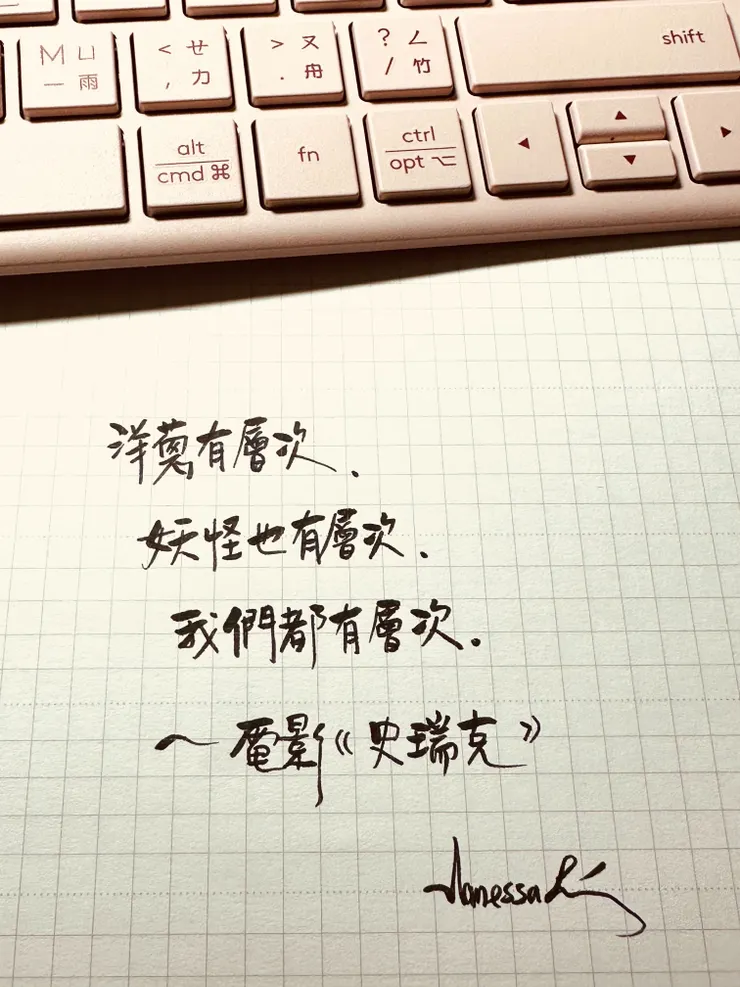 M ㄩ < ㄝ > ㄡ ? ㄥ shift
一 雨 , 力 . 冊 / 竹
alt fn ctrl ◀ ▲ ▶
cmd ⌘ opt ⌥ ▼
洋蔥有層次、
妖怪也有層次、
我們都有層次。
～電影《史瑞克》
Vanessa